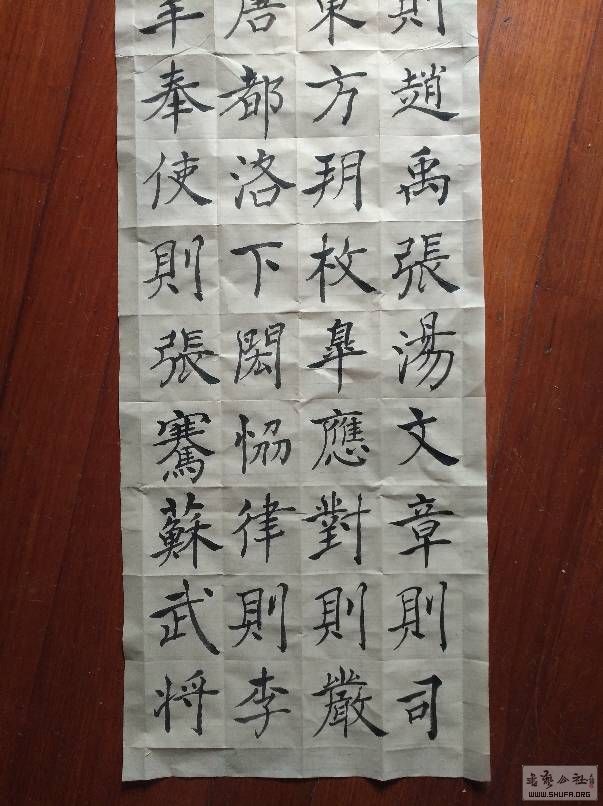 則趙禹張湯文章則司
東方朔枚皐應對則嚴
唐都洛下閎恊律則李
年奉使則張騫蘇武将
书艺公社
WWW.SHUFA.ORG